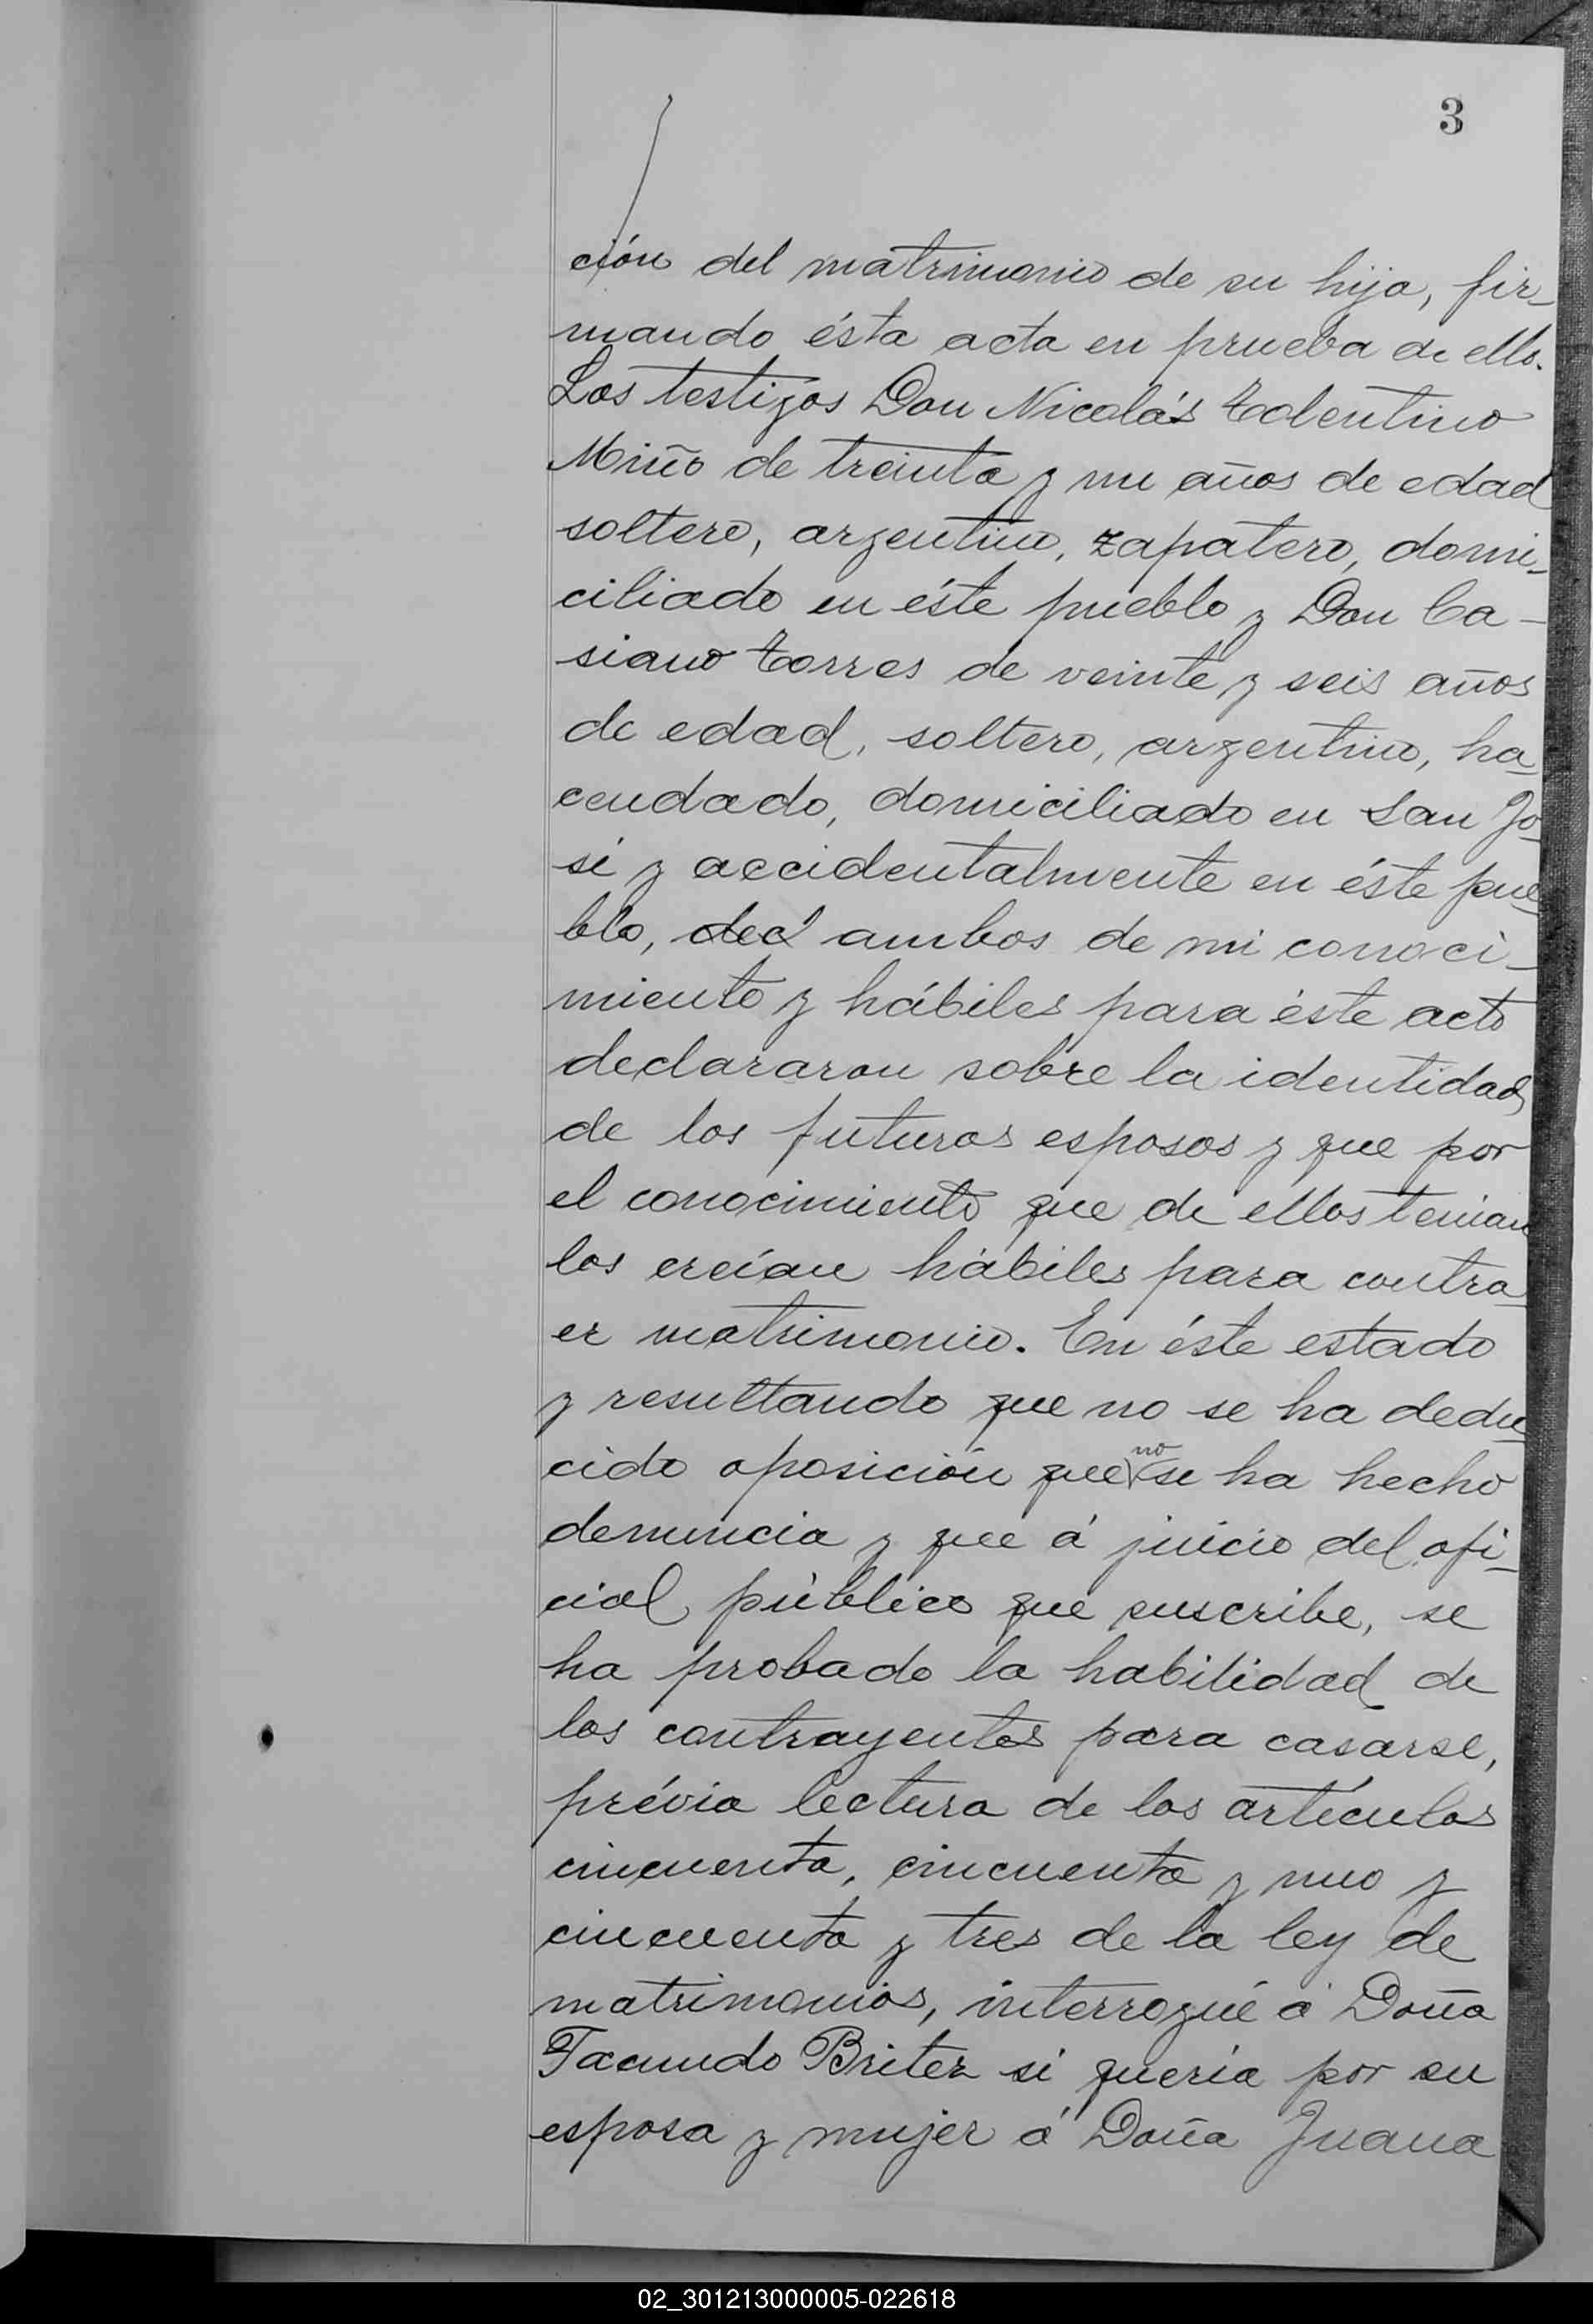 3
ción del matrimonio de su hija, fir-
mando ésta acta en prueba de ello.
Los testigos Don Nicolás Tolentino
Miño de treinta y un años de edad
soltero, argentino, zapatero, domi-
ciliado en éste pueblo y Don Ca-
siano Torres de veinte y seis años
de edad, soltero, argentino, ha-
cendado, domiciliado en San Jo-
sé y accidentalmente en éste pue-
blo, decl ambos de mi conoci-
miento y hábiles para éste acto
declararon sobre la identidad
de los futuros esposos y que por
el conocimiento que de ellos tenian
los creían hábiles para contra-
er matrimonio. En éste estado
y resultando que no se ha dedu-
cido oposición que no se ha hecho
denuncia y que á juicio del ofi-
cial público que suscribe, se
ha probado la habilidad de
los contrayentes para casarse,
prévia lectura de los artículos
cincuenta, cincuenta y uno y
cincuenta y tres de la ley de
matrimonios, interrogué á Doña
Facundo Britez si quería por su
esposa y mujer á Doña Juana
02_301213000005-022618